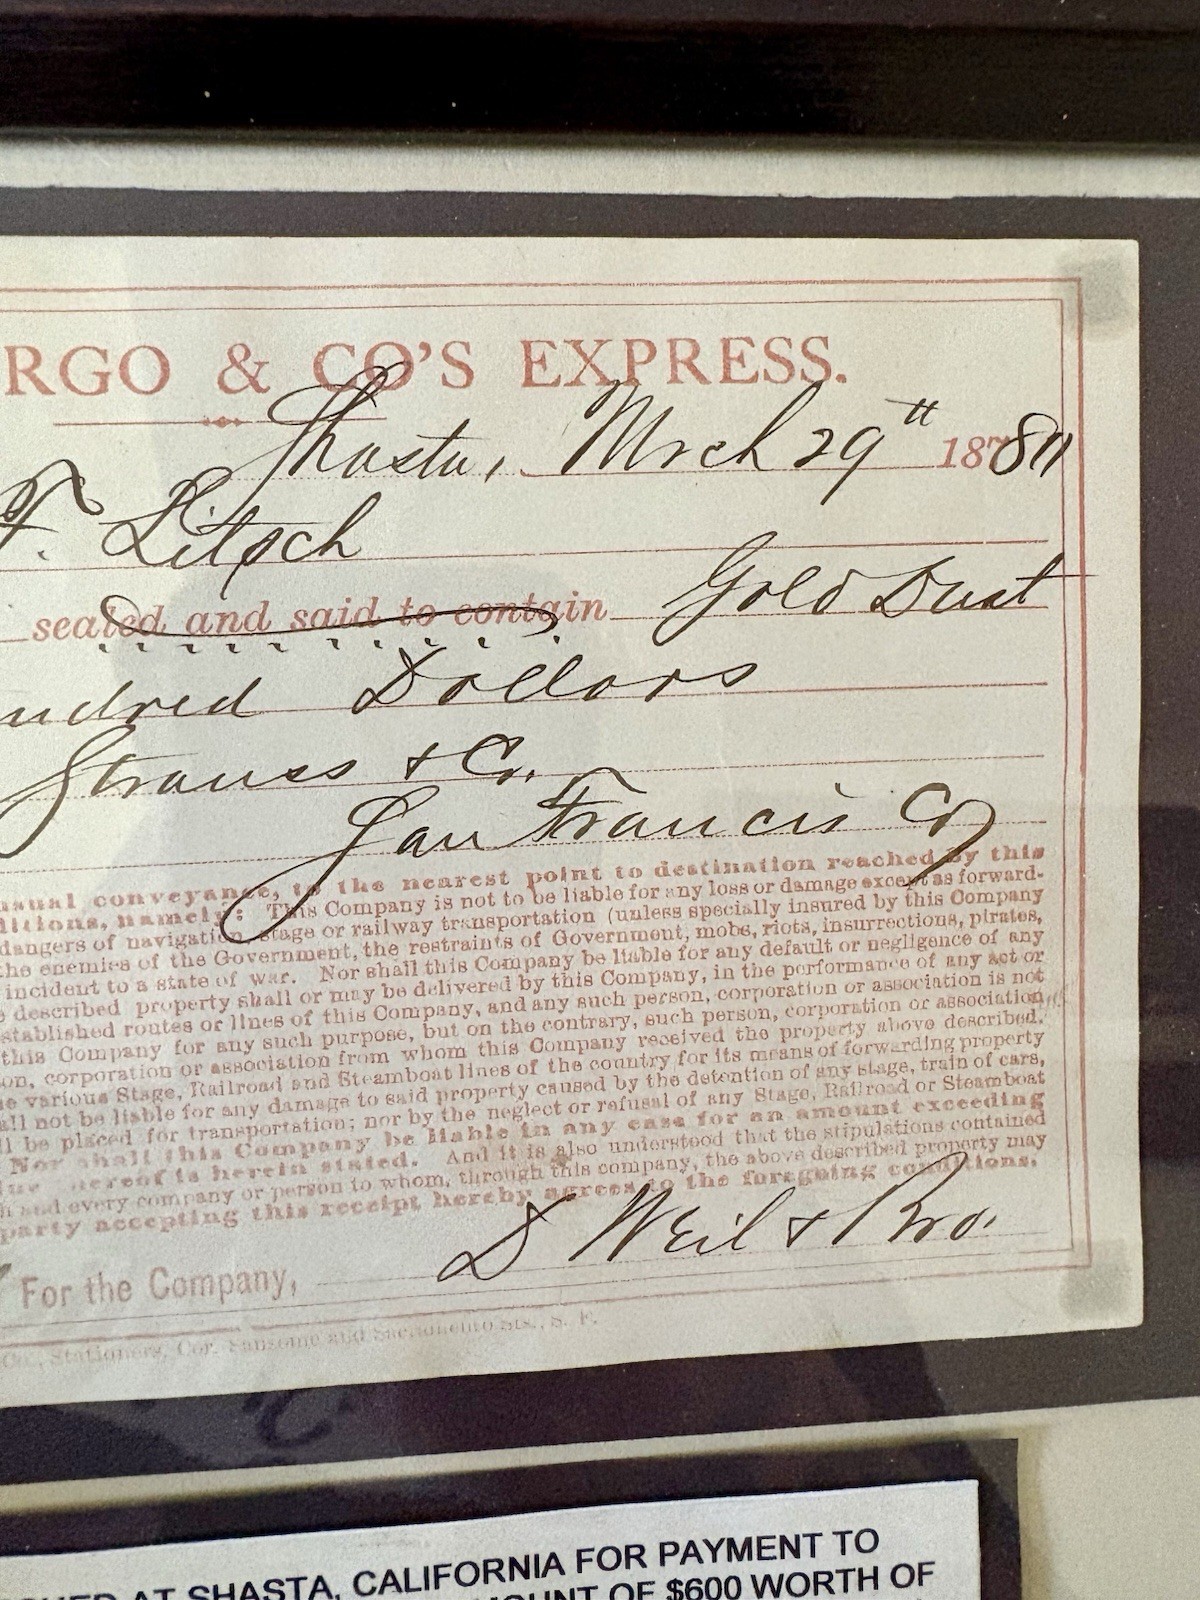 RGO & CO'S EXPRESS.
Shasta, Mrch 29th 18780
F. Litsch
sealed and said to contain Gold Dust
ndred Dollars
Strauss & Co.
San Francis Co
usual conveyance, to the nearest point to destination reached by this
ditions, namely: This Company is not to be liable for any loss or damage except as forward-
dangers of navigation, stage or railway transportation (unless specially insured by this Company
the enemies of the Government, the restraints of Government, mobs, riots, insurrections, pirates,
incident to a state of war. Nor shall this Company be liable for any default or negligence of any
e described property shall or may be delivered by this Company, in the performance of any act or
stablished routes or lines of this Company, and any such person, corporation or association is not
this Company for any such purpose, but on the contrary, such person, corporation or association
on, corporation or association from whom this Company received the property above described.
e various Stage, Railroad and Steamboat lines of the country for its means of forwarding property
all not be liable for any damage to said property caused by the detention of any stage, train of cars,
ll be placed for transportation; nor by the neglect or refusal of any Stage, Railroad or Steamboat
Nor shall this Company be liable in any case for an amount exceeding
lue hereof is herein stated. And it is also understood that the stipulations contained
h and every company or person to whom, through this company, the above described property may
party accepting this receipt hereby agrees to the foregoing conditions.
For the Company, D Weil & Bro.
Co., Stationers, Cor. Sansome and Sacramento Sts., S. F.
HED AT SHASTA, CALIFORNIA FOR PAYMENT TO
MOUNT OF $600 WORTH OF